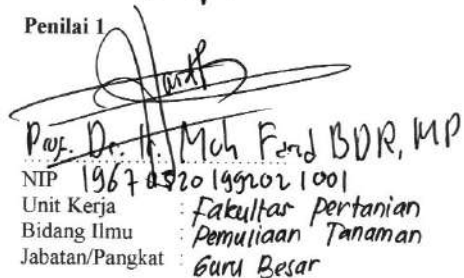 Penilai 1
Prof. Dr. Ir. Moh Farid BDR, MP
NIP 19670520 199202 1 001
Unit Kerja : Fakultas Pertanian
Bidang Ilmu : Pemuliaan Tanaman
Jabatan/Pangkat : Guru Besar